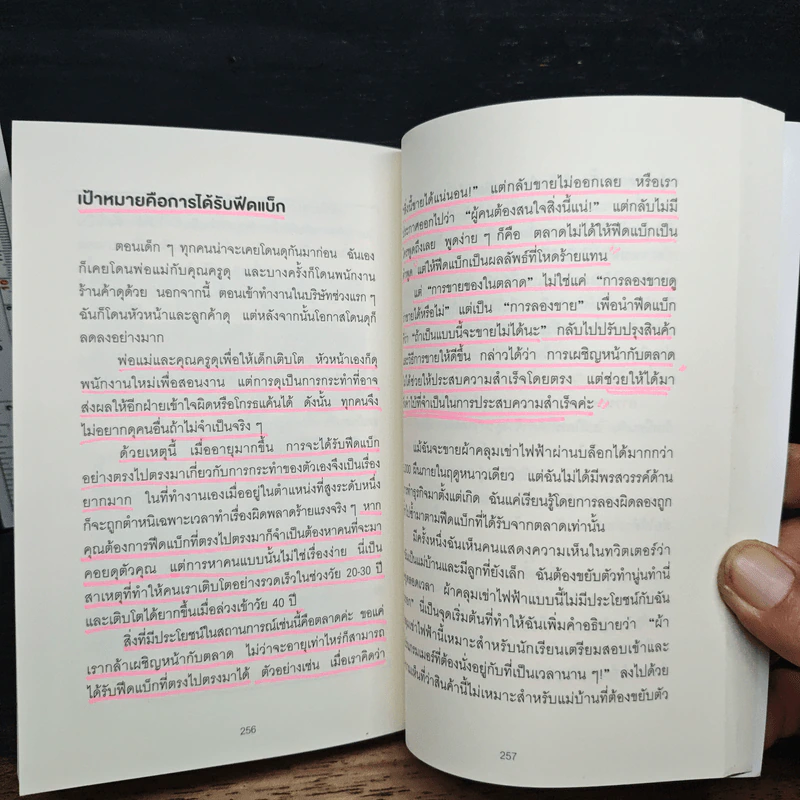 เป้าหมายคือการได้รับฟีดแบ็ก
ตอนเด็ก ๆ ทุกคนน่าจะเคยโดนดุกันมาก่อน ฉันเอง
ก็เคยโดนพ่อแม่กับคุณครูดุ และบางครั้งก็โดนพนักงาน
ร้านค้าดุด้วย นอกจากนี้ ตอนเข้าทำงานในบริษัทช่วงแรก ๆ
ฉันก็โดนหัวหน้าและลูกค้าดุ แต่หลังจากนั้นโอกาสโดนดุก็
ลดลงอย่างมาก
พ่อแม่และคุณครูดุเพื่อให้เด็กเติบโต หัวหน้าเองก็ดุ
พนักงานใหม่เพื่อสอนงาน แต่การดุเป็นการกระทำที่อาจ
ส่งผลให้อีกฝ่ายเข้าใจผิดหรือโกรธแค้นได้ ดังนั้น ทุกคนจึง
ไม่อยากดุคนอื่นถ้าไม่จำเป็นจริง ๆ
ด้วยเหตุนี้ เมื่ออายุมากขึ้น การจะได้รับฟีดแบ็ก
อย่างตรงไปตรงมาเกี่ยวกับการกระทำของตัวเองจึงเป็นเรื่อง
ยากมาก ในที่ทำงานเองเมื่ออยู่ในตำแหน่งที่สูงระดับหนึ่ง
ก็จะถูกตำหนิเฉพาะเวลาทำเรื่องผิดพลาดร้ายแรงจริง ๆ หาก
คุณต้องการฟีดแบ็กที่ตรงไปตรงมาก็จำเป็นต้องหาคนที่จะมา
คอยดุตัวคุณ แต่การหาคนแบบนั้นไม่ใช่เรื่องง่าย นี่เป็น
สาเหตุที่ทำให้คนเราเติบโตอย่างรวดเร็วในช่วงวัย 20-30 ปี
และเติบโตได้ยากขึ้นเมื่อล่วงเข้าวัย 40 ปี
สิ่งที่มีประโยชน์ในสถานการณ์เช่นนี้คือตลาดค่ะ ขอแค่
เรากล้าเผชิญหน้ากับตลาด ไม่ว่าจะอายุเท่าไหร่ก็สามารถ
ได้รับฟีดแบ็กที่ตรงไปตรงมาได้ ตัวอย่างเช่น เมื่อเราคิดว่า
256
"สิ่งนี้ขายได้แน่นอน!" แต่กลับขายไม่ออกเลย หรือเรา
ประกาศออกไปว่า "ผู้คนต้องสนใจสิ่งนี้แน่!" แต่กลับไม่มี
พูดถึงเลย พูดง่าย ๆ ก็คือ ตลาดไม่ได้ให้ฟีดแบ็กเป็น
คำพูด แต่ให้ฟีดแบ็กเป็นผลลัพธ์ที่โหดร้ายแทน
แต่ "การขายของในตลาด" ไม่ใช่แค่ "การลองขายดู
ขายได้หรือไม่" แต่เป็น "การลองขาย" เพื่อนำฟีดแบ็ก
ว่า "ถ้าเป็นแบบนี้จะขายไม่ได้นะ" กลับไปปรับปรุงสินค้า
วิธีการขายให้ดีขึ้น กล่าวได้ว่า การเผชิญหน้ากับตลาด
ได้ช่วยให้ประสบความสำเร็จโดยตรง แต่ช่วยให้ได้มา
ที่จำเป็นในการประสบความสำเร็จค่ะ
แม้ฉันจะขายผ้าคลุมเข่าไฟฟ้าผ่านบล็อกได้มากกว่า
ผืนภายในฤดูหนาวเดียว แต่ฉันไม่ได้มีพรสวรรค์ด้าน
ธุรกิจมาตั้งแต่เกิด ฉันแค่เรียนรู้โดยการลองผิดลองถูก
ซ้ำมาตามฟีดแบ็กที่ได้รับจากตลาดเท่านั้น
มีครั้งหนึ่งฉันเห็นคนแสดงความเห็นในทวิตเตอร์ว่า
เป็นแม่บ้านและมีลูกที่ยังเล็ก ฉันต้องขยับตัวทำนู่นทำนี่
ตลอดเวลา ผ้าคลุมเข่าไฟฟ้าแบบนี้ไม่มีประโยชน์กับฉัน
นี่เป็นจุดเริ่มต้นที่ทำให้ฉันเพิ่มคำอธิบายว่า "ผ้า
คลุมเข่าไฟฟ้านี้เหมาะสำหรับนักเรียนเตรียมสอบเข้าและ
ที่ต้องนั่งอยู่กับที่เป็นเวลานาน ๆ!" ลงไปด้วย
เห็นที่ว่าสินค้านี้ไม่เหมาะสำหรับแม่บ้านที่ต้องขยับตัว
257